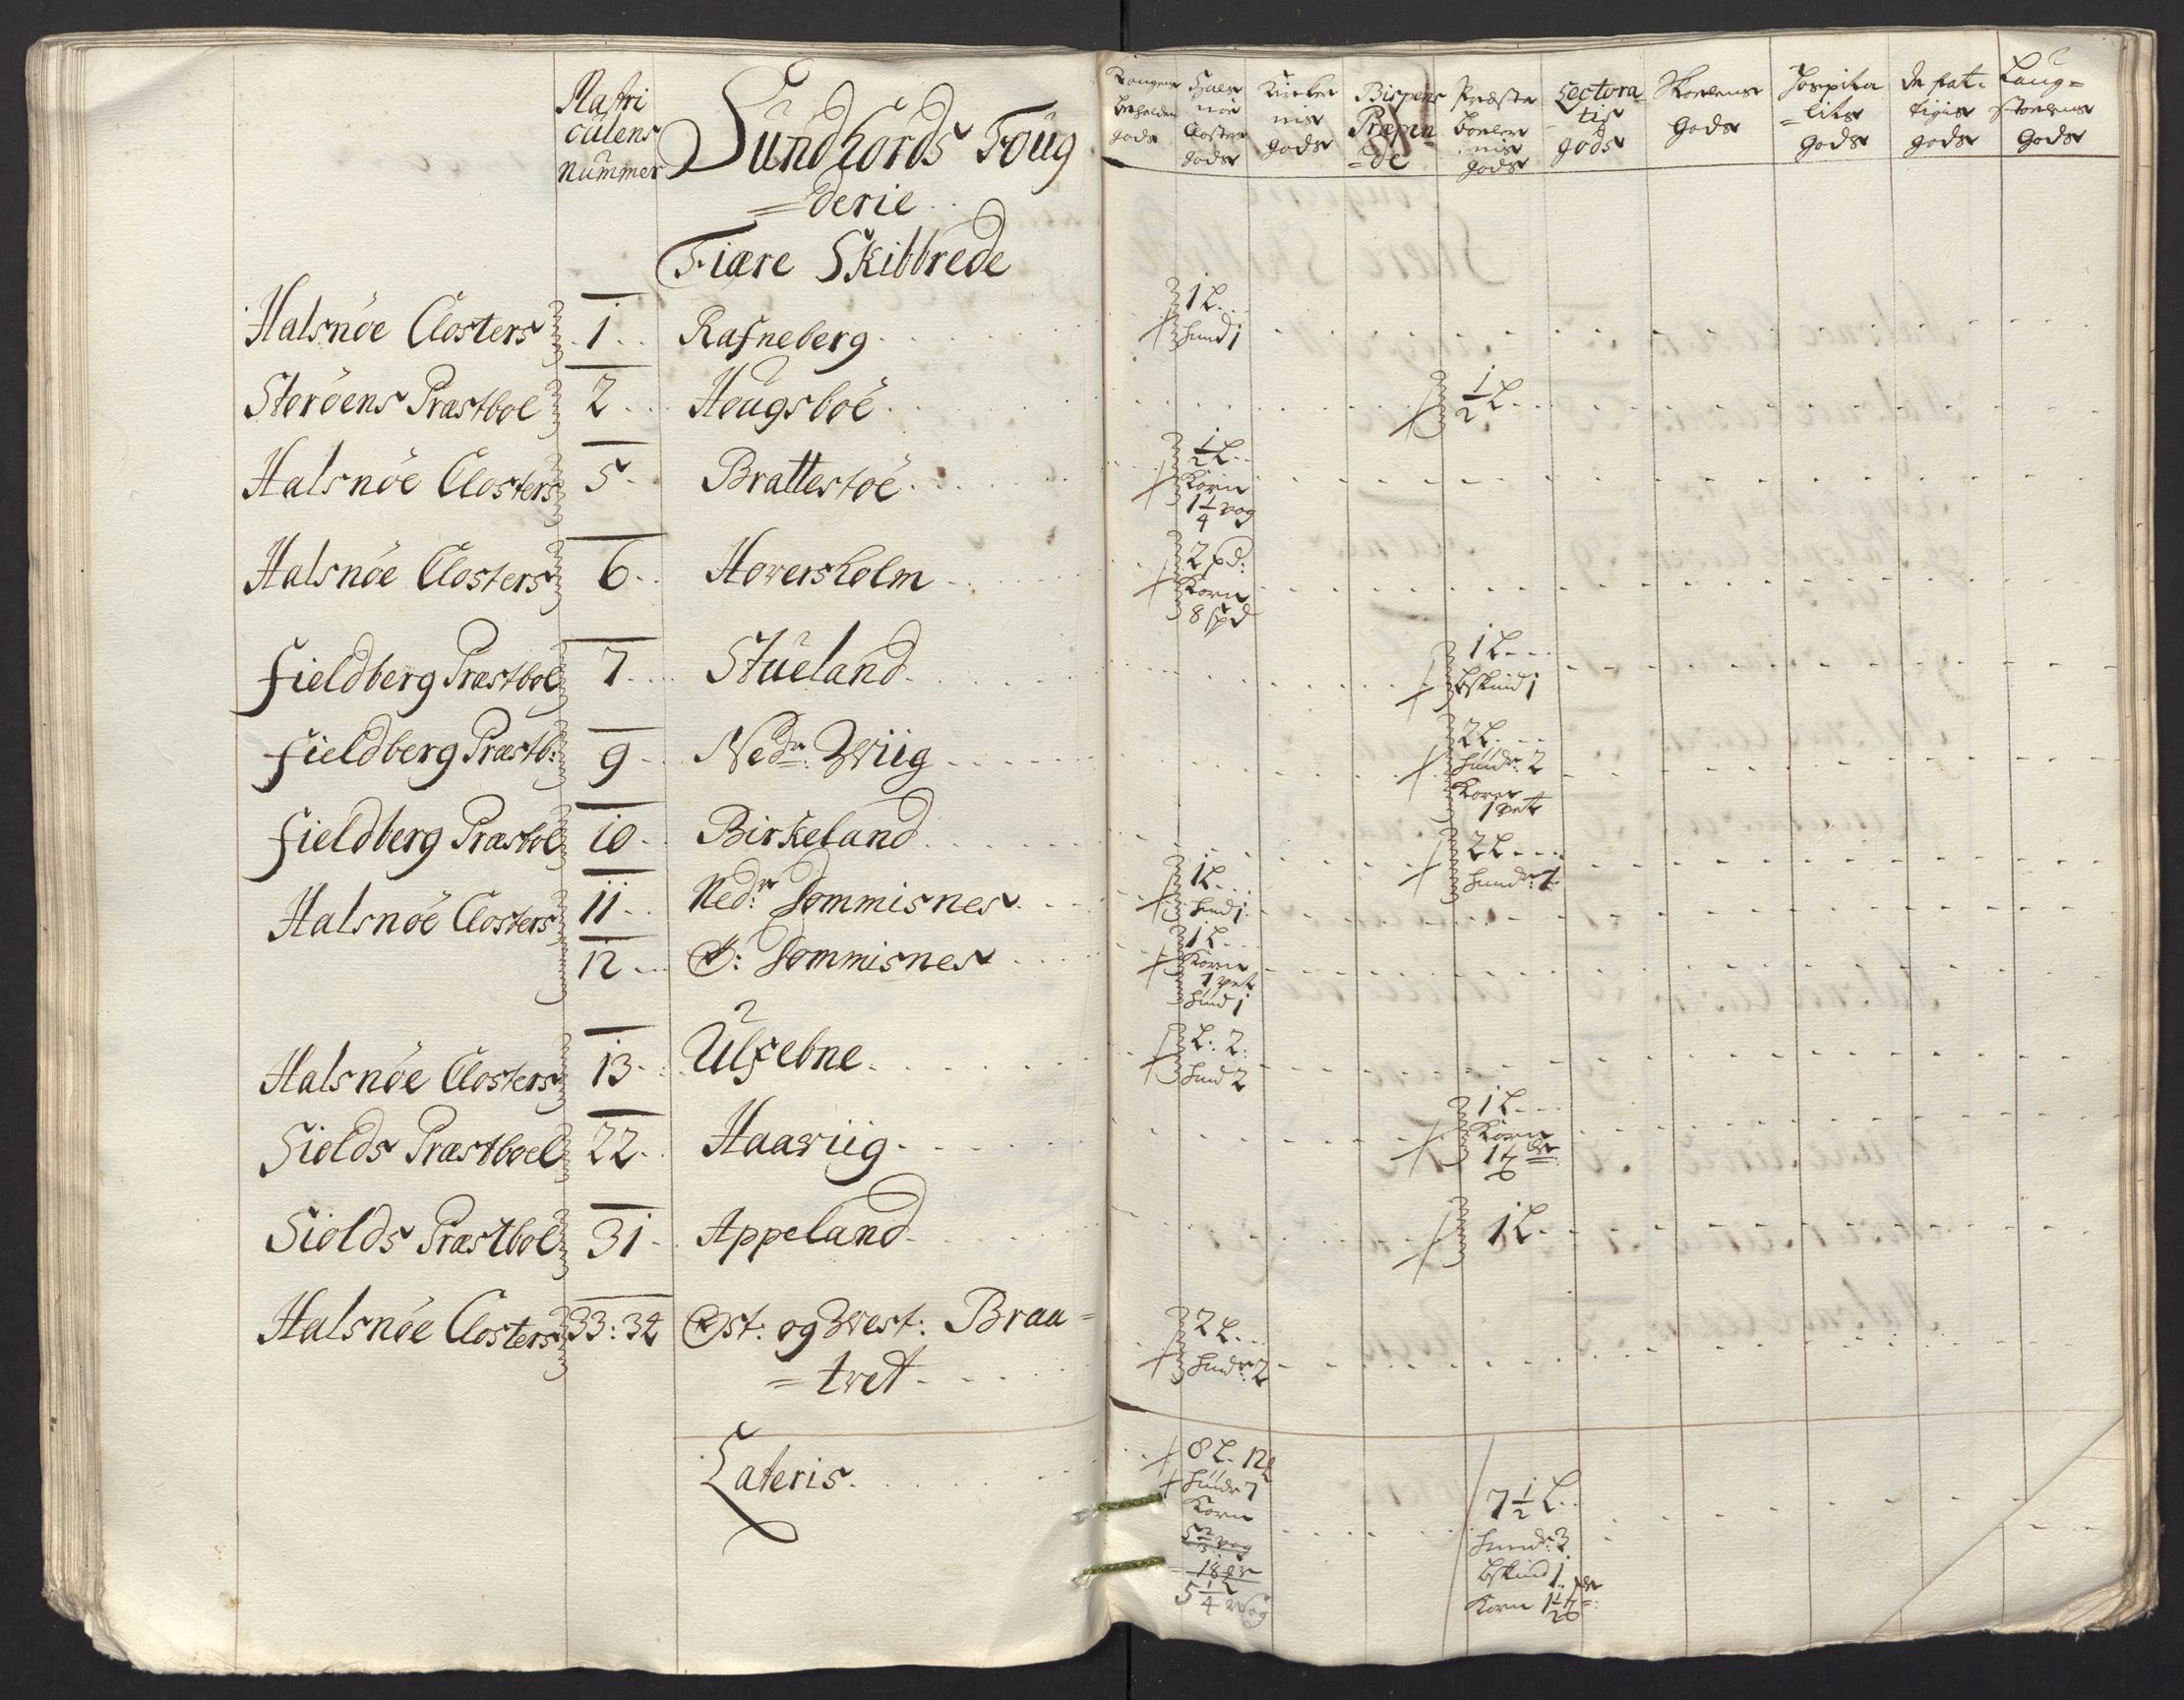 Matri
culens
Nummer
Sundhords Foug
=derie
Fiære Skibbrede
Halsnöe Closters 1 Rafneberg
Storöens Præstboe 2 Hougsboe
Halsnöe Closters 5 Brattestöe
Halsnöe Closters 6 Hoversholm
Fieldberg Præstboe 7 Stueland
Fieldberg Præstb: 9 Nedr: Wiig
Fieldberg Præstboe 10 Birkeland
Halsnöe Closters 11 Nedr: Sommisnes
12 Ø: Sommisnes
Halsnöe Closters 13 Ulfebne
Siolds Præstboel 22 Haawiig
Siolds Præstboel 31 Appeland
Halsnöe Closters 33:34 Øst: og West: Braa=
=tvet
Lateris
Kongens
beholden
gods
Hals
nöe
Closters
gods
Kircker
nis
gods
Bispens
Præben
=de
Præste
boeler
nis
gods
Lectora
=tis
gods
Skolens
Gods
Hospita
=lits
gods
de fat:
tiges
gods
Laug=
stolens
Gods
1 L
Hud 1
1/2 L
1/2 L
Korn
1 1/4 vog
2 pd:
Korn
8 spd
1 L
bskind 1
2 L
Huder: 2
Korn
1 vet
2 L
Huder: 1
1 L
Hud 1
1 L
Korn
1 vet
Hud 1
L: 2:
Hud 2
1 L
Korn
1 L
2 L
Huder: 2
8 L 12
Huder 7
Korn
5 1/4 Vog
7 1/2 L
Huder: 3
bskind 1
Korn